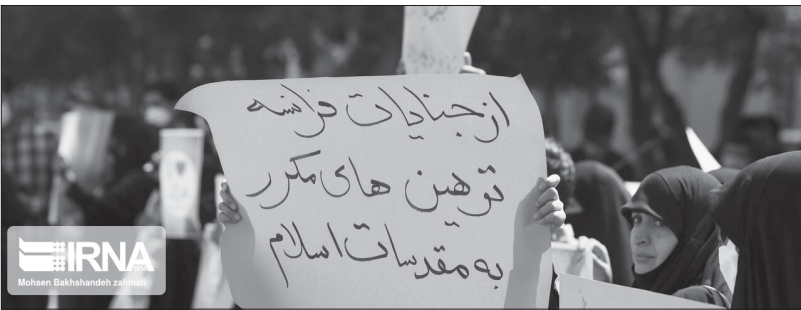 از جنایات فرانسه
توهین های مکرر
به مقدسات اسلام
IRNA
Mohsen Bakhshandeh zahmati